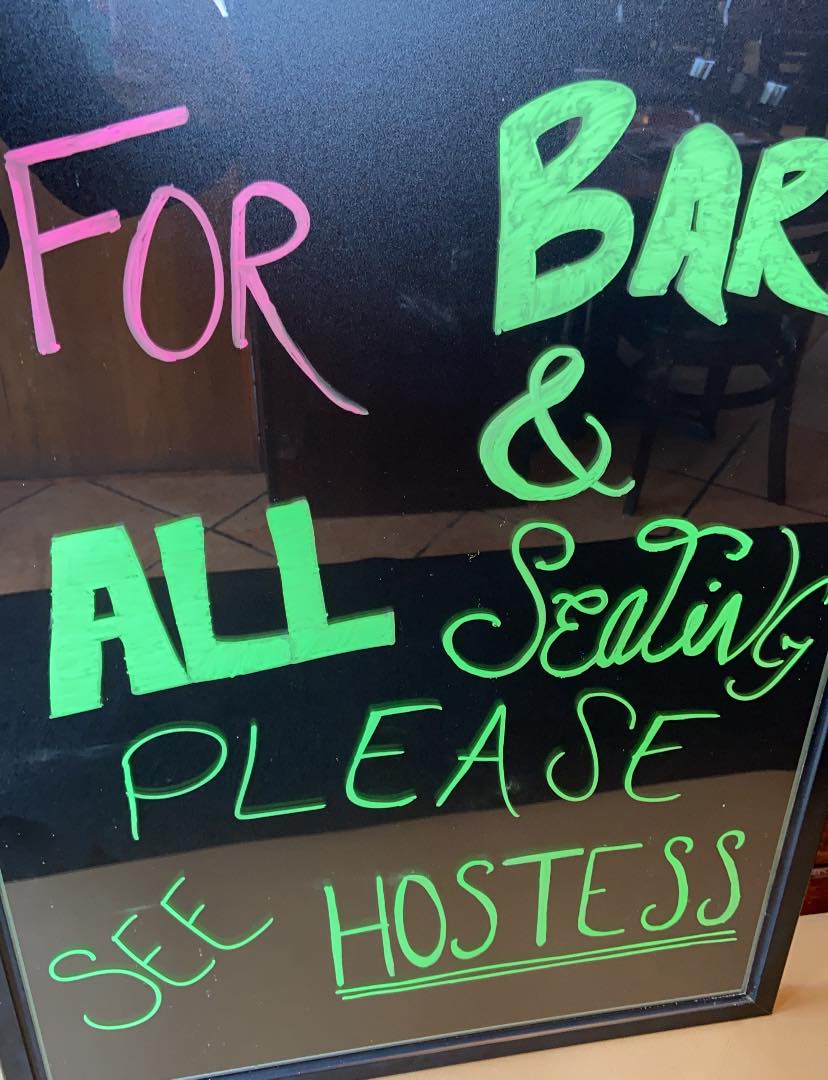 FOR BAR
&
ALL Seating
PLEASE
SEE HOSTESS